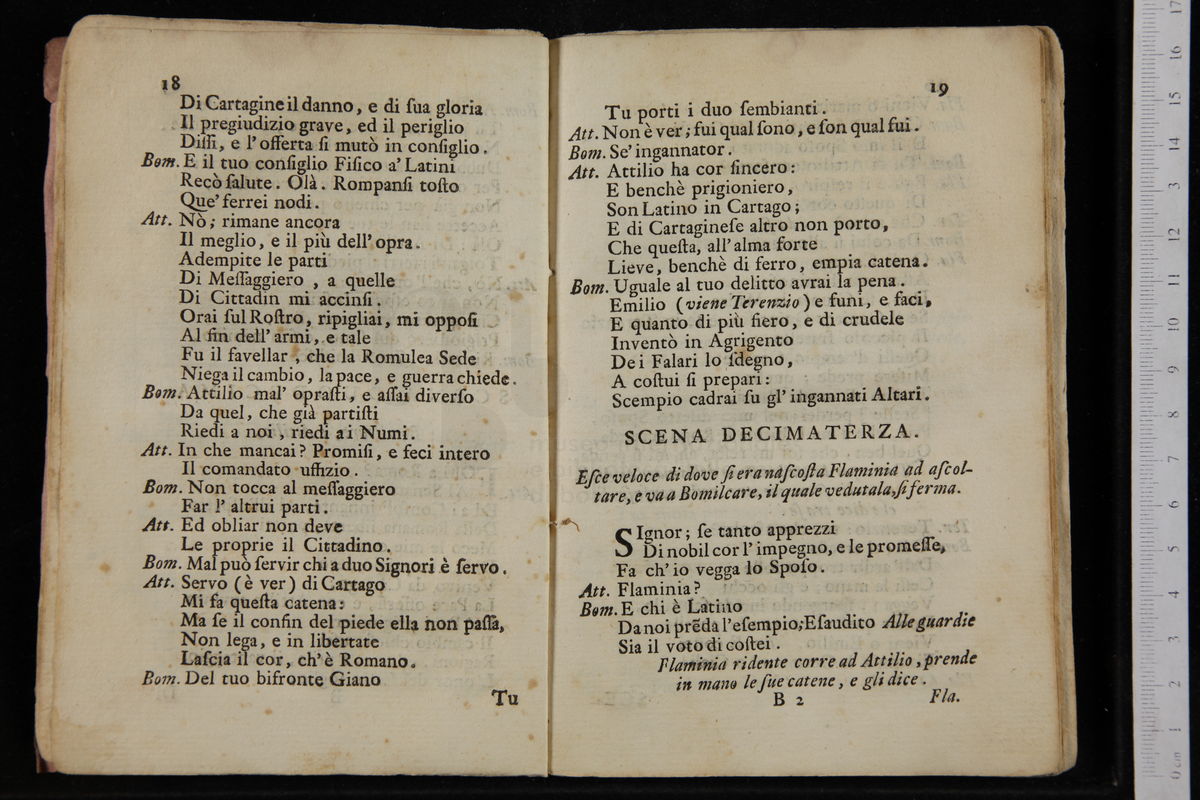 18
Di Cartagine il danno, e di ſua gloria
Il pregiudizio grave, ed il periglio
Diſſi, e l'offerta ſi mutò in conſiglio.
Bom. E il tuo conſiglio Fiſico a' Latini
Recò ſalute. Olà. Rompanſi toſto
Que' ferrei nodi.
Att. Nò; rimane ancora
Il meglio, e il più dell' opra.
Adempite le parti
Di Meſſaggiero, a quelle
Di Cittadin mi accinſi.
Orai ſul Roſtro, ripigliai, mi oppoſi
Al fin dell' armi, e tale
Fu il favellar, che la Romulea Sede
Niega il cambio, la pace, e guerra chiede.
Bom. Attilio mal' opraſti, e aſſai diverſo
Da quel, che già partiſti
Riedi a noi, riedi ai Numi.
Att. In che mancai? Promiſi, e feci intero
Il comandato uffizio.
Bom. Non tocca al meſſaggiero
Far l' altrui parti.
Att. Ed obliar non deve
Le proprie il Cittadino.
Bom. Mal può ſervir chi a duo Signori è ſervo.
Att. Servo (è ver) di Cartago
Mi fa queſta catena:
Ma ſe il confin del piede ella non paſſa,
Non lega, e in libertate
Laſcia il cor, ch' è Romano.
Bom. Del tuo bifronte Giano
Tu
19
Tu porti i duo ſembianti.
Att. Non è ver; fui qual ſono, e ſon qual fui.
Bom. Se' ingannator.
Att. Attilio ha cor ſincero:
E benchè prigioniero,
Son Latino in Cartago;
E di Cartagineſe altro non porto,
Che queſta, all' alma forte
Lieve, benchè di ferro, empia catena.
Bom. Uguale al tuo delitto avrai la pena.
Emilio (viene Terenzio) e funi, e faci,
E quanto di più fiero, e di crudele
Inventò in Agrigento
De i Falari lo ſdegno,
A coſtui ſi prepari:
Scempio cadrai ſu gl' ingannati Altari.
SCENA DECIMATERZA.
Eſce veloce di dove ſi era naſcoſta Flaminia ad aſcol-
tare, e va a Bomilcare, il quale vedutala, ſi ferma.
SIgnor; ſe tanto apprezzi
Di nobil cor l' impegno, e le promeſſe,
Fa ch' io vegga lo Spoſo.
Att. Flaminia?
Bom. E chi è Latino
Da noi prẽda l'eſempio; Eſaudito Alle guardie
Sia il voto di coſtei.
Flaminia ridente corre ad Attilio, prende
in mano le ſue catene, e gli dice.
B 2
Fla.